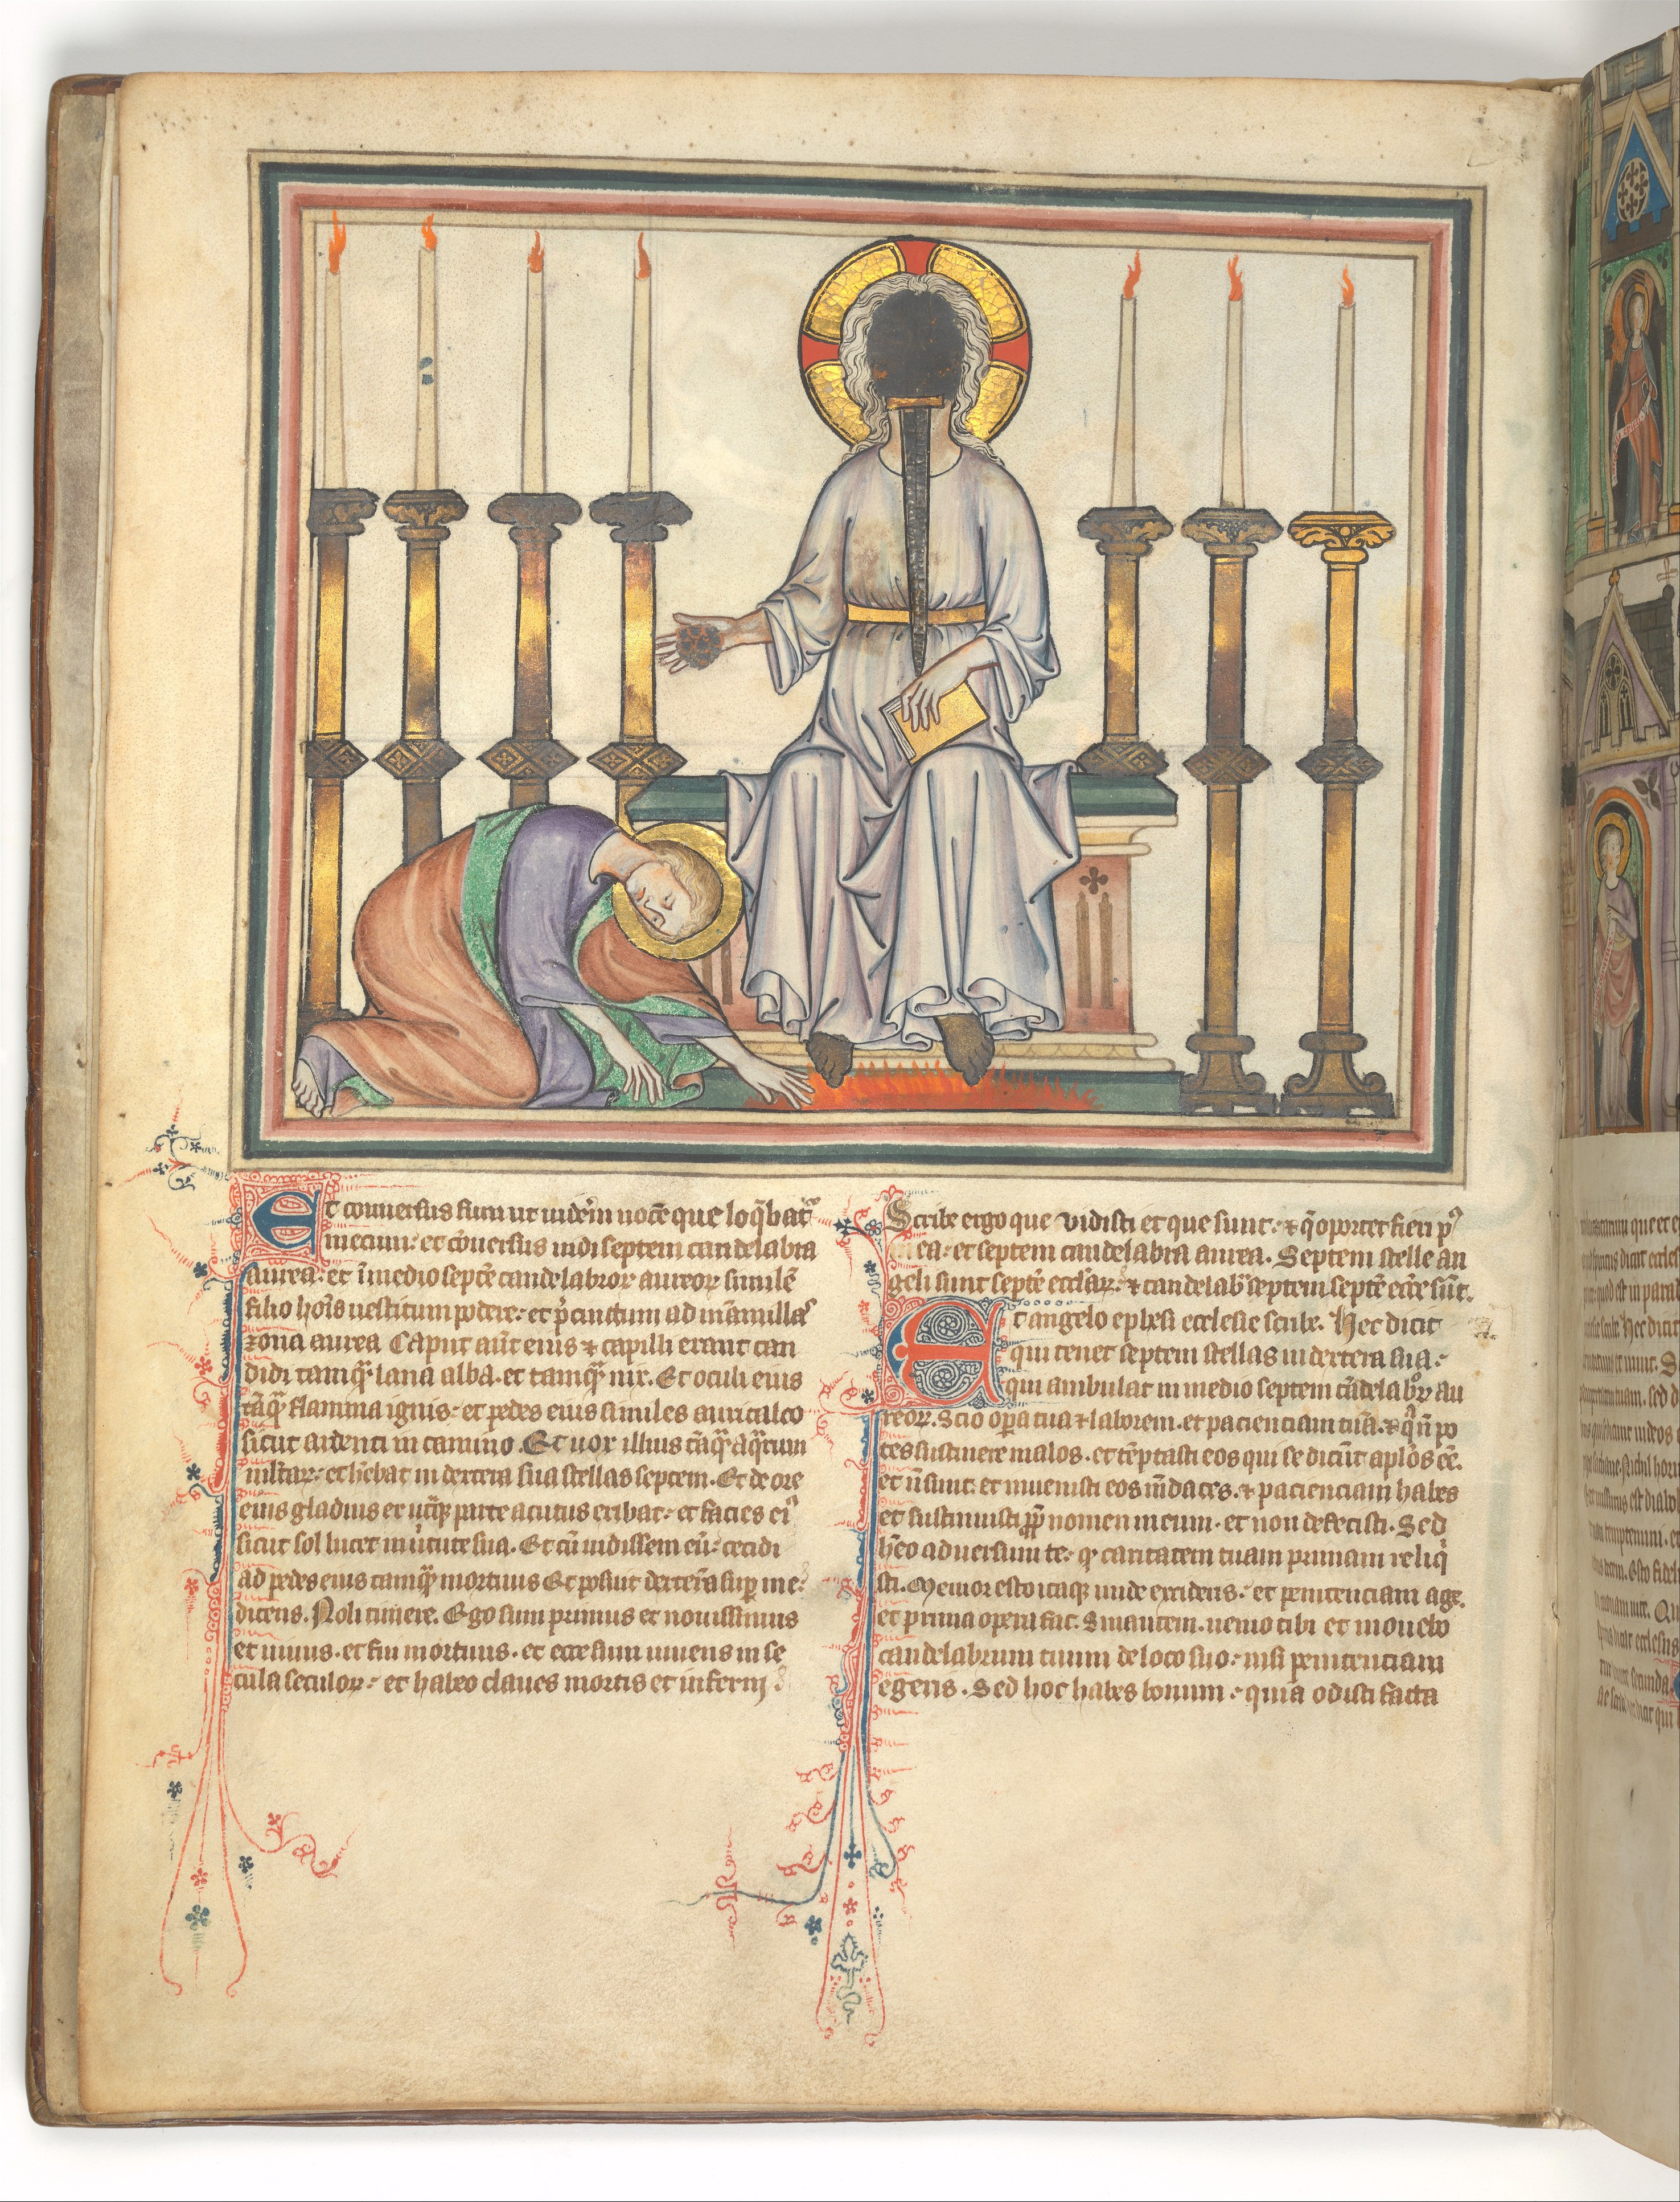 Et conuersus sum ut uiderē uocē que loq̄bat᷑
mecum: et cōuersus uidi septem candelabra
aurea: et ī medio septē candelabroꝝ aureoꝝ similē
filio hoīs uestitum podere: et p̄cinctum ad mamillas
zona aurea Caput aūt eius ⁊ capilli erant can
didi tamq̄ꝫ lana alba. et tamq̄ꝫ nix. Et oculi eius
tāq̄ꝫ flamma ignis: et pedes eius similes auricalco
sicut ardenti in camino. Et uox illius tāq̄ꝫ aq̄rum
multaꝝ: et hēbat in dextera sua stellas septem. Et de ore
eius gladius ex utq̄ꝫ parte acutus exibat: et facies eiꝰ
sicut sol lucet in uirtute sua. Et cū uidissem eū: cecidi
ad pedes eius tamq̄ꝫ mortuus Et posuit dexterā suā sup me:
dicens. Noli timere. Ego sum primus et nouissimus
et uiuus. et fui mortuus. et ecce sum uiuens in se
cula seculoꝝ: et habeo claues mortis et inferni
Scribe ergo que vidisti et que sunt: ⁊ q̄ oportet fieri pꝰ
ea: et septem candelabra aurea. Septem stelle an
geli sunt septē eccl̄iaꝝ: ⁊ candelab̄ septem septē ecc̄e sūt.
Et angelo ephesi ecclesie scribe. Hec dicit
qui tenet septem stellas in dextera sua:
qui ambulat in medio septem cādelabroꝝ au
reoꝝ. Scio opera tua ⁊ laborem. et pacienciam tuā. ⁊ q̄ n̄ po
tes sustinere malos. et tēptasti eos qui se dicūt apl̄os eē.
et n̄ sunt: et inuenisti eos mēdaces. ⁊ pacienciam habes
et sustinuisti ꝓp̄ nomen meum. et non defecisti. Sed
hēo aduersum te: qꝫ caritatem tuam primam reliq̄
sti. Memor esto itaqꝫ unde excideris: et penitenciam age.
et prima opera fac. Sin autem. uenio tibi et mouebo
candelabrum tuum de loco suo: nisi penitenciam
egeris. Sed hoc habes bonum: quia odisti facta